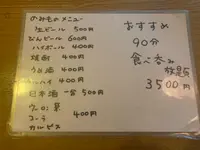 のみものメニュー
生ビール 500円
びんビール 600円
ハイボール 400円
焼酎 400円
うめ酒 400円
酎ハイ 400円
日本酒 一合 500円
ウーロン茶
コーラ 400円
カルピス
おすすめ
90分
食べ呑み
放題
3500円